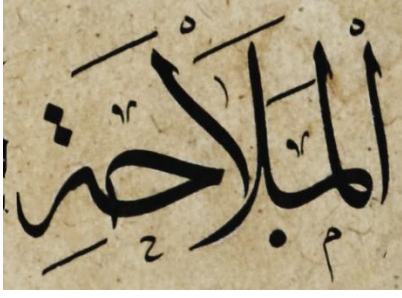 الْمَلَاحَةِ